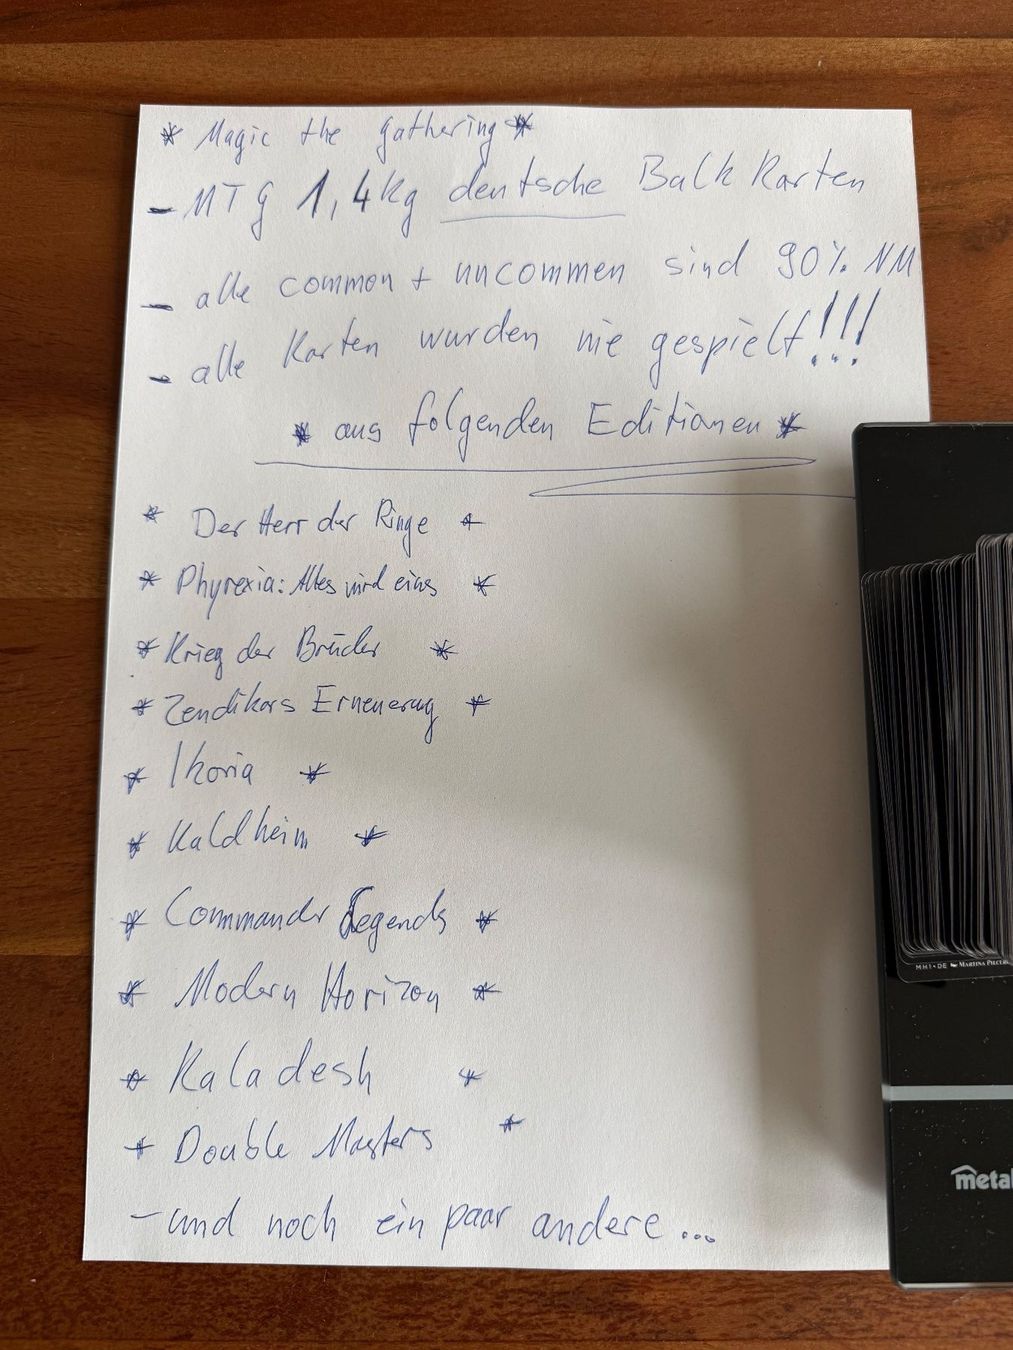 * Magic the gathering *
- MTG 1,4kg deutsche Balk Karten
- alle common + uncommen sind 90% NM
- alle Karten wurden nie gespielt!!!
* aus folgenden Editionen *
* Der Herr der Ringe *
* Phyrexia: Alles wird eins *
* Krieg der Brüder *
* Zendikars Erneuerung *
* Ikoria *
* Kaldheim *
* Commandr Legends *
* Modern Horizon *
* Kaladesh *
* Double Masters *
- und noch ein paar andere...
MH1 • DE MARTINA